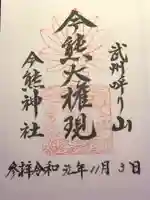 武州呼り山
今熊大権現
今熊神社
参拝 令和元年11月3日